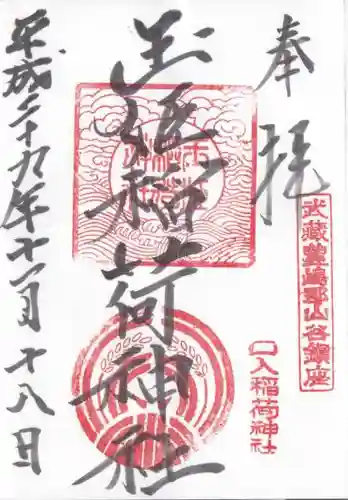 奉拝
武蔵豊嶋郡山谷鎮座
口入稲荷神社
玉姫稲荷神社
平成二十九年十一月十八日